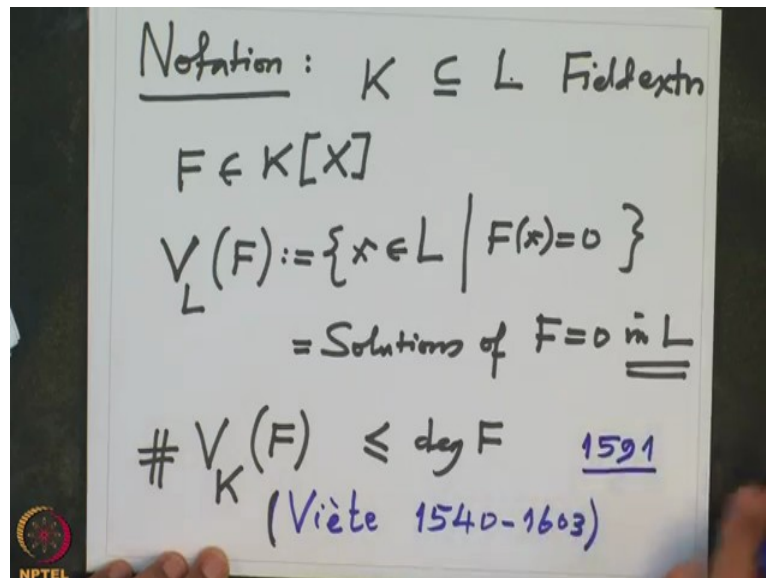 Notation : K ⊆ L Field extn
F ∈ K[X]
V_L(F) := {x ∈ L | F(x)=0 }
= Solutions of F=0 in L
# V_K(F) ≤ deg F 1591
(Viète 1540-1603)
NPTEL